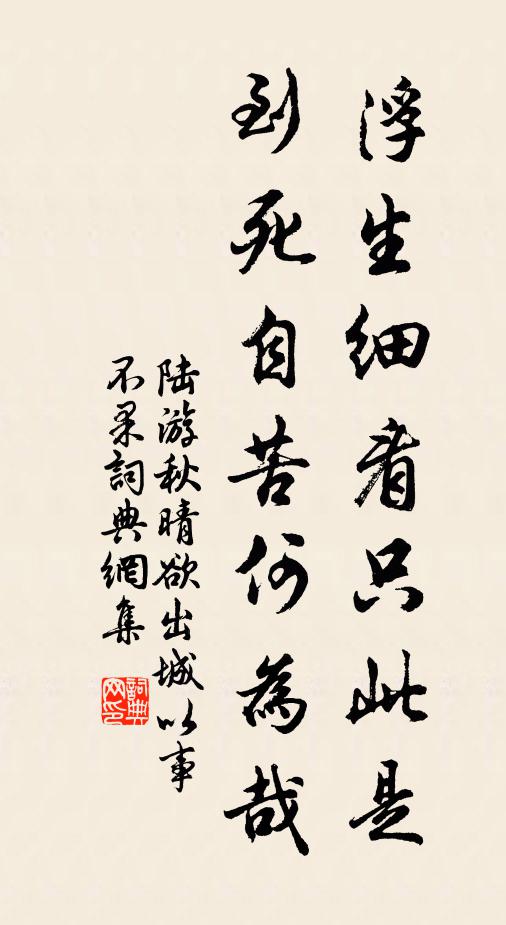 浮生细看只此是
到死自苦何為哉
陆游秋晴欲出城以事
不果詞典網集
詞典
网印